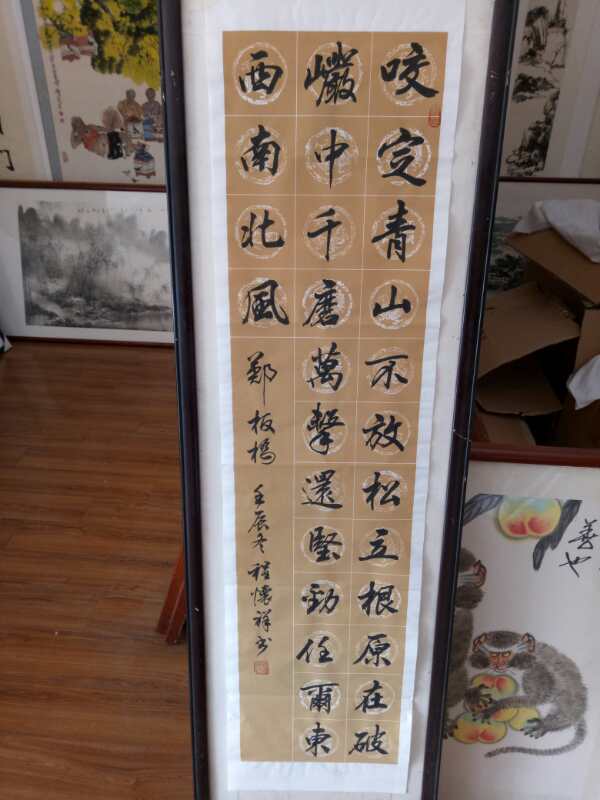 咬定青山不放松立根原在破
巗中千磨萬擊還堅勁任爾東
西南北風
鄭板橋 壬辰冬程懷祥书
善也